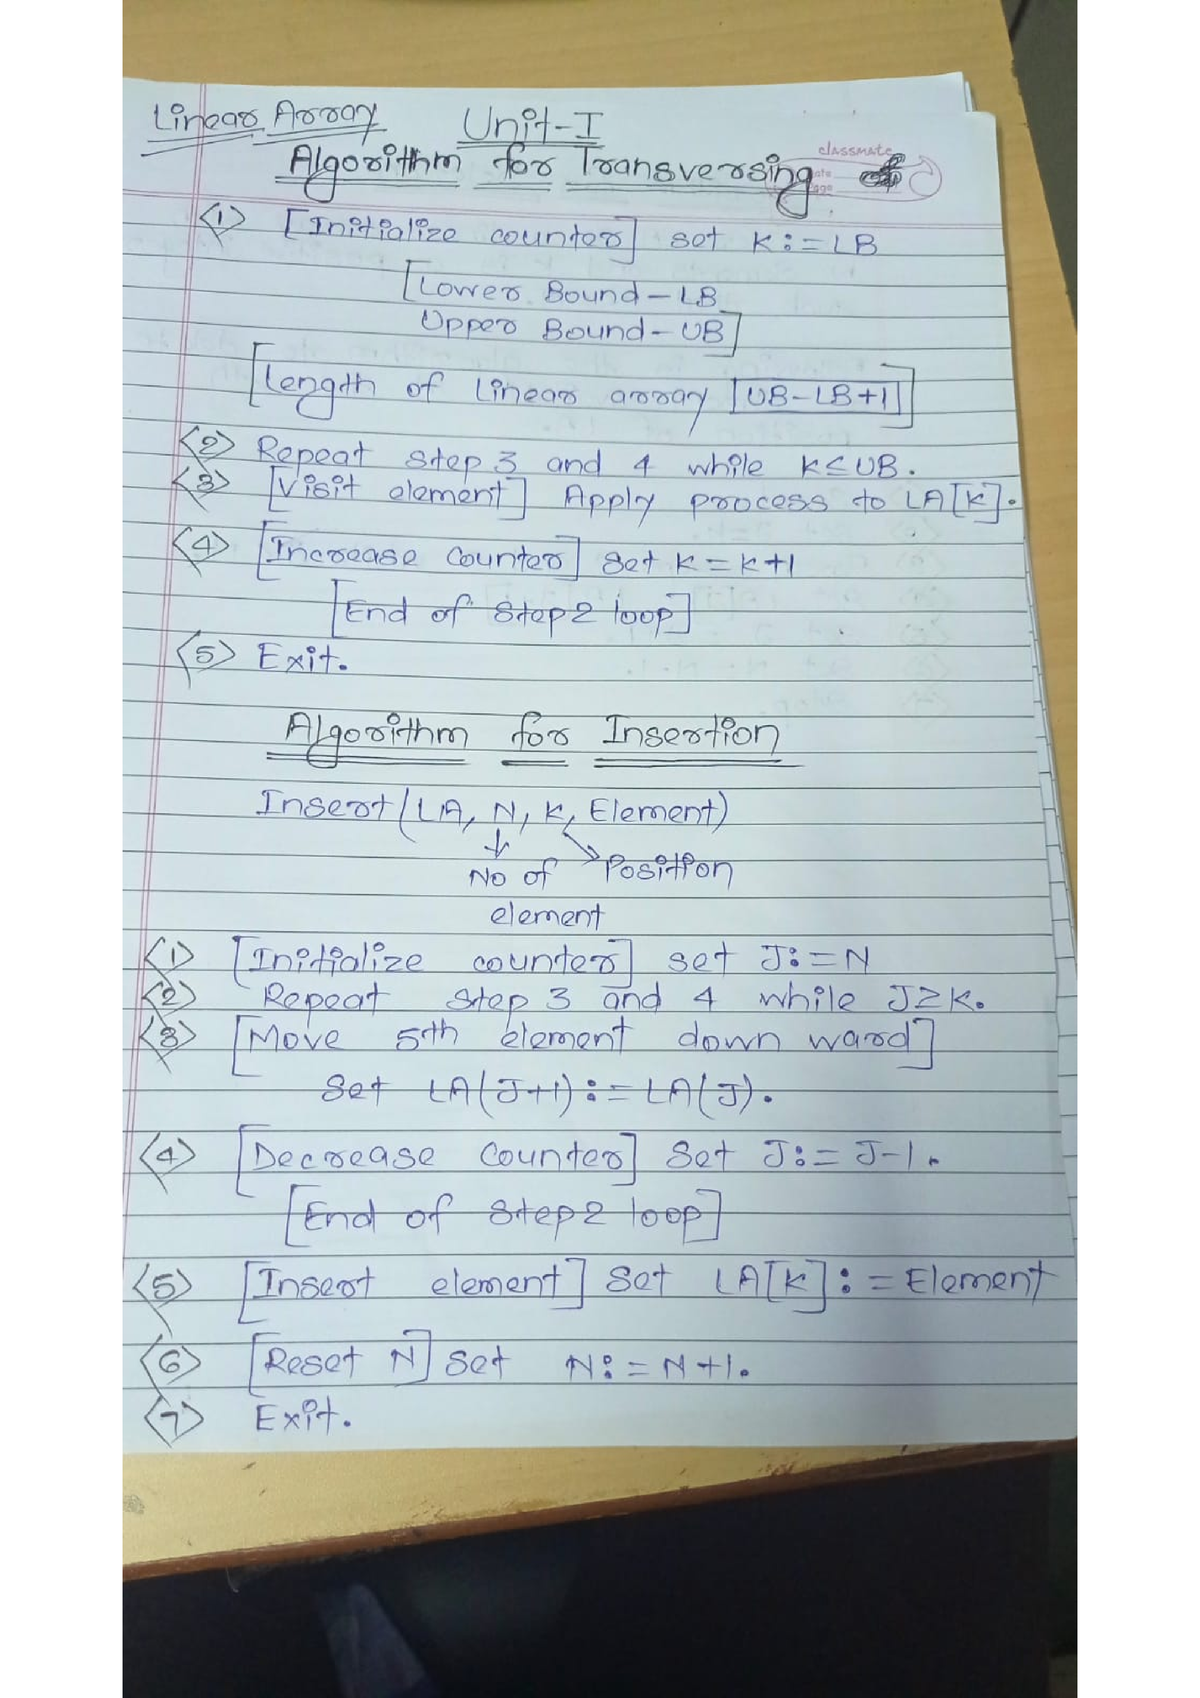 Linear Array Unit-I
classmate
Algorithm for Transversing
<1> [Initialize counter] set K:=LB
[Lower Bound-LB
Upper Bound-UB]
[Length of Linear array [UB-LB+1]]
<2> Repeat step 3 and 4 while K≤UB.
<3> [Visit element] Apply process to LA[K].
<4> [Increase Counter] Set K=K+1
[End of Step2 loop]
<5> Exit.
Algorithm for Insertion
Insert(LA, N, K, Element)
No of Position
element
<1> [Initialize counter] set J:=N
<2> Repeat step 3 and 4 while J≥K.
<3> [Move 5th element down ward]
Set LA(J+1):=LA(J).
<4> [Decrease Counter] Set J:=J-1.
[End of Step2 loop]
<5> [Insert element] Set LA[K]:=Element
<6> [Reset N] Set N:=N+1.
<7> Exit.